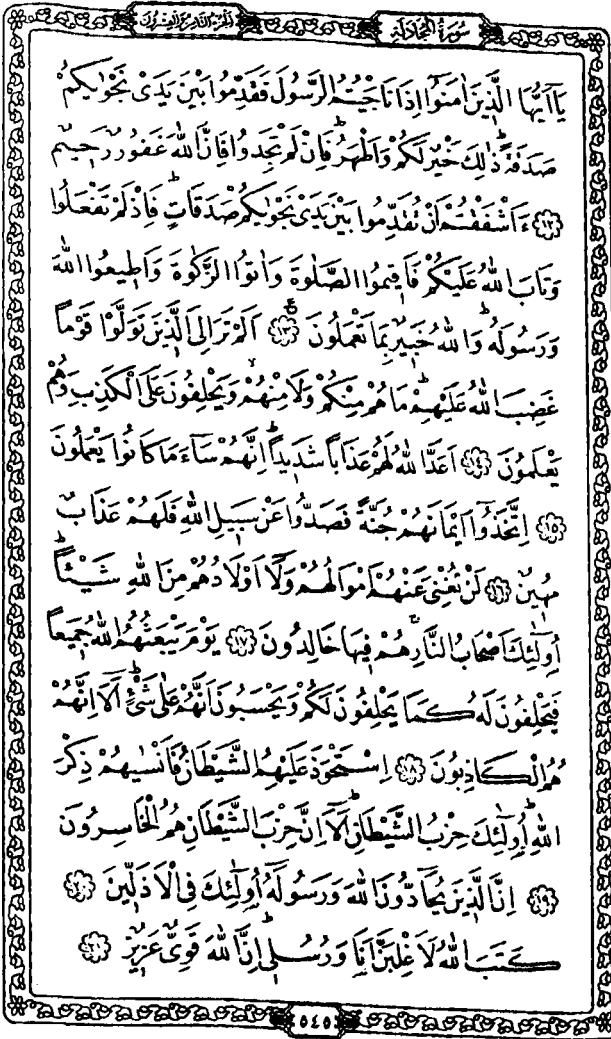 سورة المجادلة
الجزء الثامن والعشرون
يَاۤ اَيُّهَا الَّذٖينَ اٰمَنُٓوا اِذَا نَاجَيْتُمُ الرَّسُولَ فَقَدِّمُوا بَيْنَ يَدَيْ نَجْوٰيكُمْ
صَدَقَةًؕ ذٰلِكَ خَيْرٌ لَكُمْ وَاَطْهَرُؕ فَاِنْ لَمْ تَجِدُوا فَاِنَّ اللّٰهَ غَفُورٌ رَحٖيمٌ
﴿١٢﴾ ءَاَشْفَقْتُمْ اَنْ تُقَدِّمُوا بَيْنَ يَدَيْ نَجْوٰيكُمْ صَدَقَاتٍؕ فَاِذْ لَمْ تَفْعَلُوا
وَتَابَ اللّٰهُ عَلَيْكُمْ فَاَقٖيمُوا الصَّلٰوةَ وَاٰتُوا الزَّكٰوةَ وَاَطٖيعُوا اللّٰهَ
وَرَسُولَهُؕ وَاللّٰهُ خَبٖيرٌ بِمَا تَعْمَلُونَ ﴿١٣﴾ اَلَمْ تَرَ اِلَى الَّذٖينَ تَوَلَّوْا قَوْمًا
غَضِبَ اللّٰهُ عَلَيْهِمْؕ مَا هُمْ مِنْكُمْ وَلَا مِنْهُمْۙ وَيَحْلِفُونَ عَلَى الْكَذِبِ وَهُمْ
يَعْلَمُونَ ﴿١٤﴾ اَعَدَّ اللّٰهُ لَهُمْ عَذَابًا شَدٖيدًاؕ اِنَّهُمْ سَٓاءَ مَا كَانُوا يَعْمَلُونَ
﴿١٥﴾ اِتَّخَذُٓوا اَيْمَانَهُمْ جُنَّةً فَصَدُّوا عَنْ سَبٖيلِ اللّٰهِ فَلَهُمْ عَذَابٌ
مُهٖينٌ ﴿١٦﴾ لَنْ تُغْنِيَ عَنْهُمْ اَمْوَالُهُمْ وَلَٓا اَوْلَادُهُمْ مِنَ اللّٰهِ شَيْـًٔاؕ
اُولٰٓئِكَ اَصْحَابُ النَّارِؕ هُمْ فٖيهَا خَالِدُونَ ﴿١٧﴾ يَوْمَ يَبْعَثُهُمُ اللّٰهُ جَمٖيعًا
فَيَحْلِفُونَ لَهُ كَمَا يَحْلِفُونَ لَكُمْ وَيَحْسَبُونَ اَنَّهُمْ عَلٰى شَيْءٍؕ اَلَٓا اِنَّهُمْ
هُمُ الْكَاذِبُونَ ﴿١٨﴾ اِسْتَحْوَذَ عَلَيْهِمُ الشَّيْطَانُ فَاَنْسٰيهُمْ ذِكْرَ
اللّٰهِؕ اُولٰٓئِكَ حِزْبُ الشَّيْطَانِؕ اَلَٓا اِنَّ حِزْبَ الشَّيْطَانِ هُمُ الْخَاسِرُونَ
﴿١٩﴾ اِنَّ الَّذٖينَ يُحَٓادُّونَ اللّٰهَ وَرَسُولَهُٓ اُولٰٓئِكَ فِي الْاَذَلّٖينَ ﴿٢٠﴾
كَتَبَ اللّٰهُ لَاَغْلِبَنَّ اَنَا۬ وَرُسُلٖيؕ اِنَّ اللّٰهَ قَوِيٌّ عَزٖيزٌ ﴿٢١﴾
٥٤٥